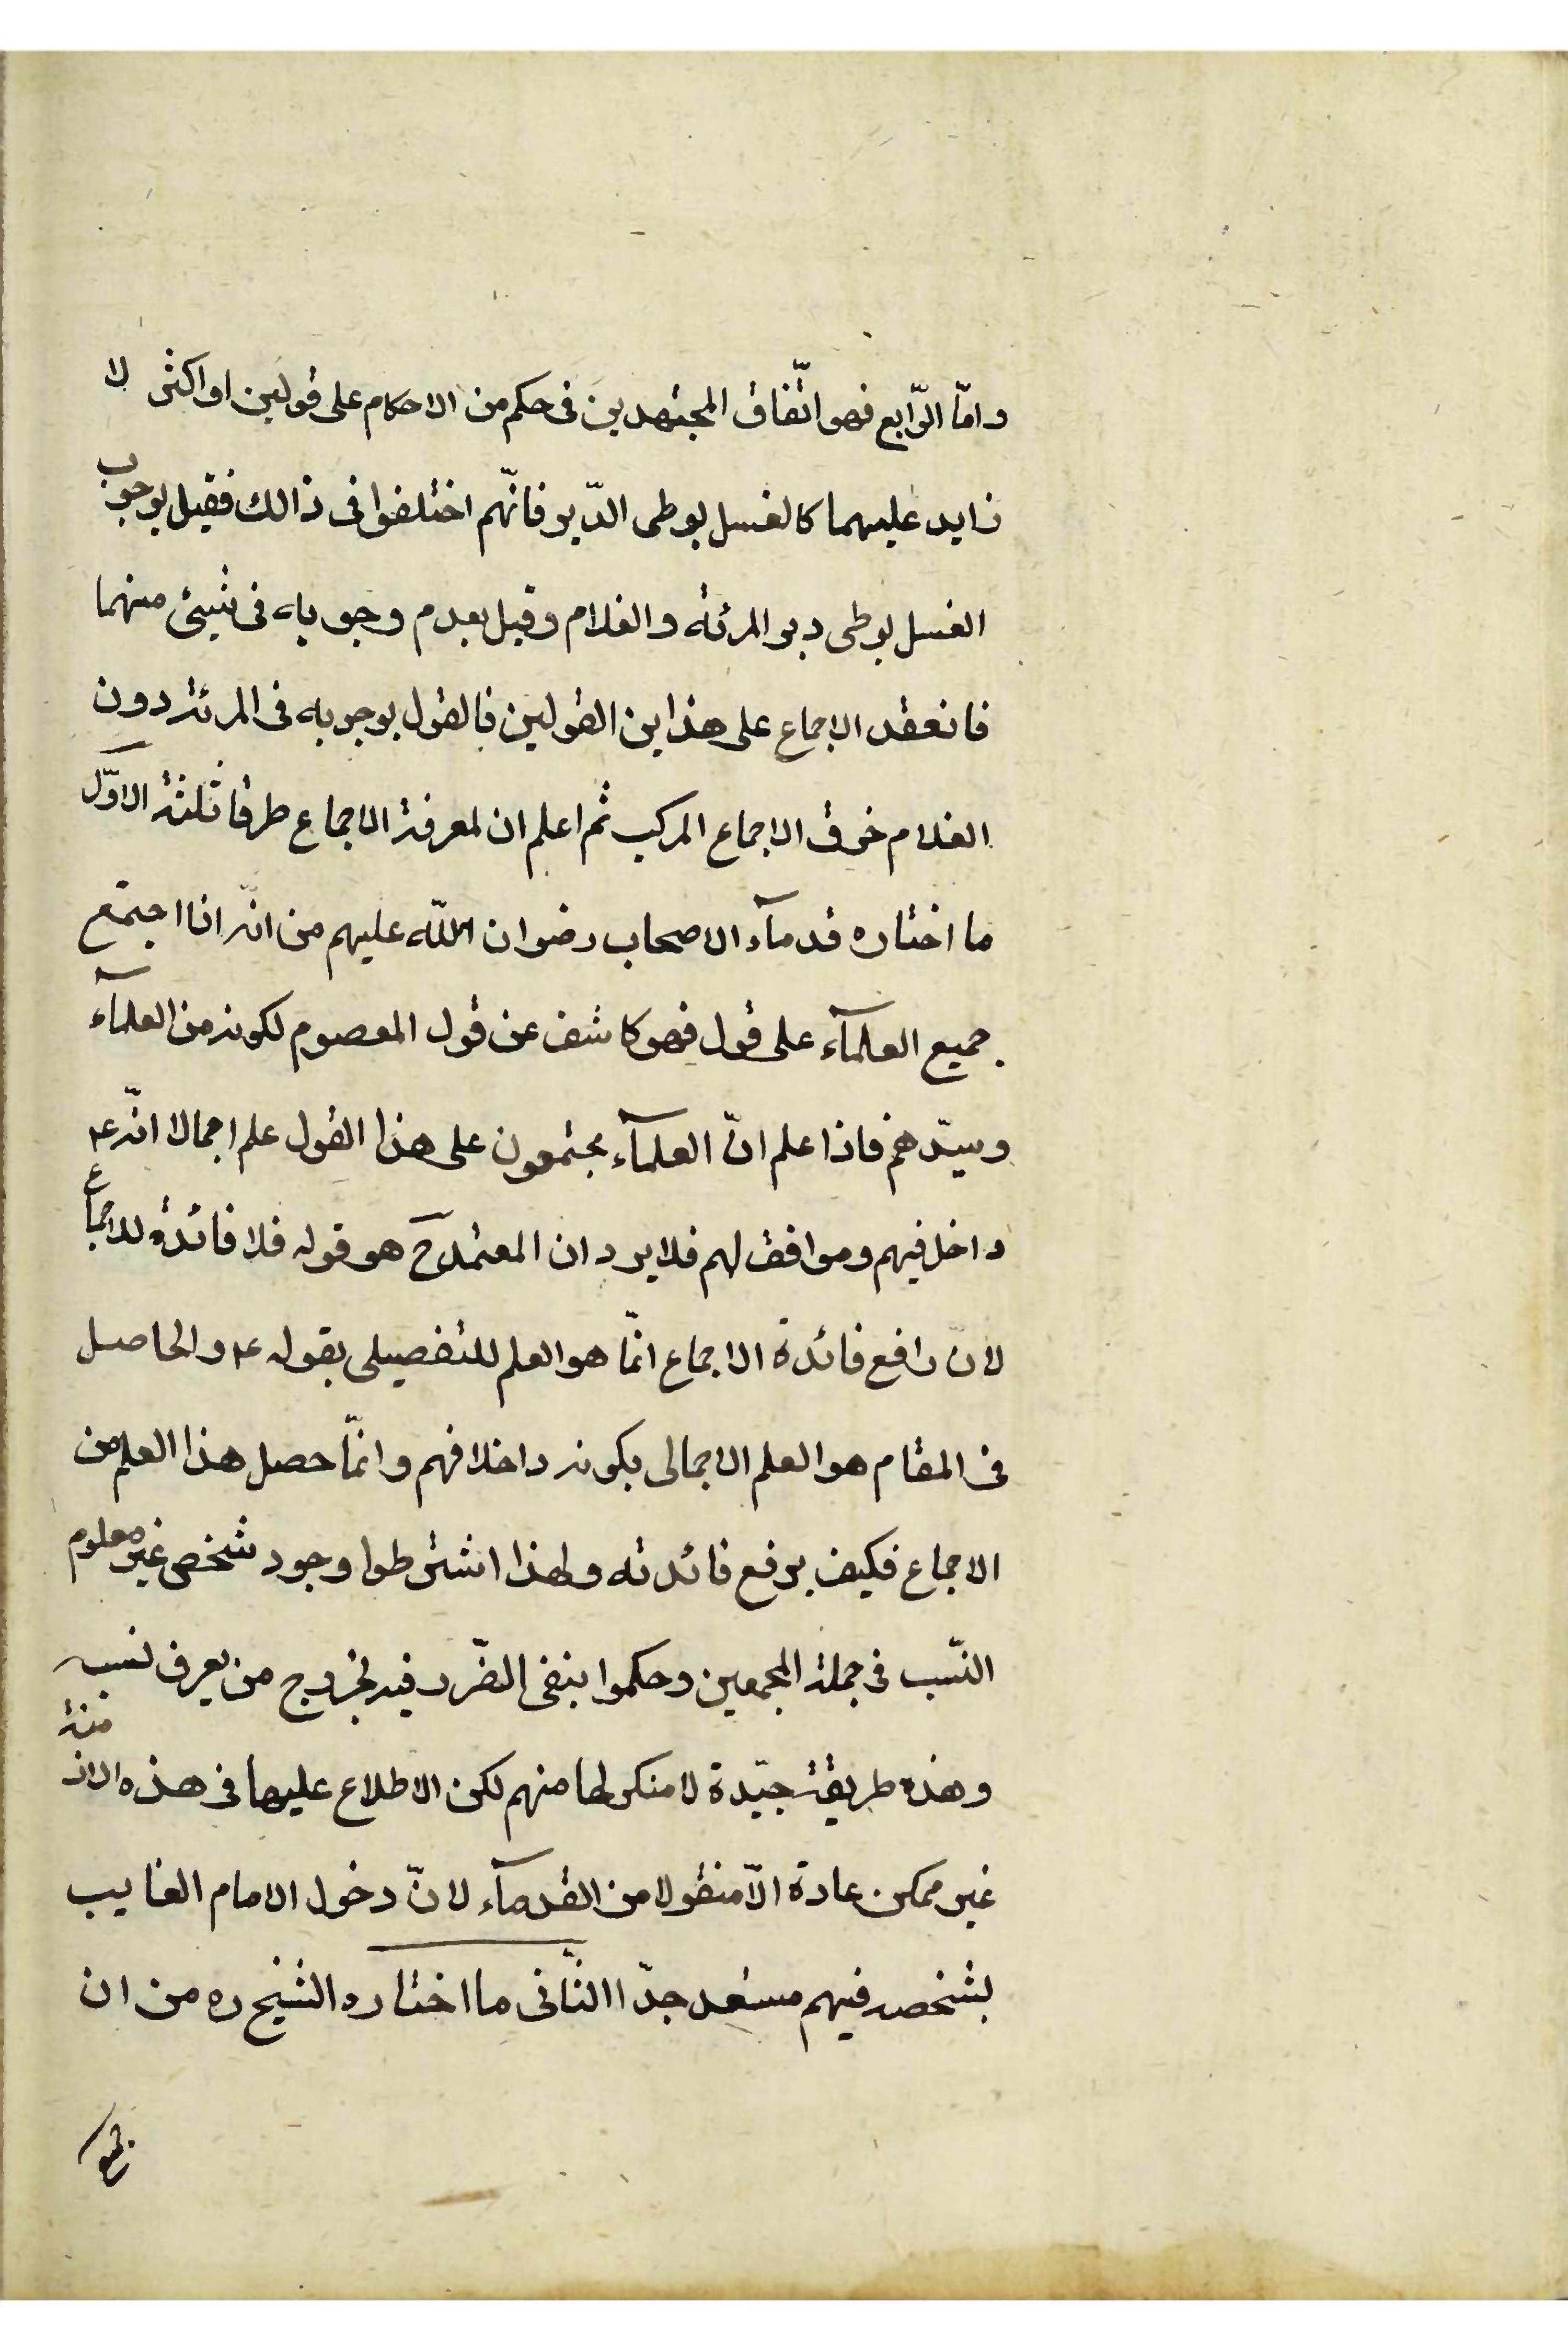 وامّا الرّابع فهو اتّفاق المجتهدين فى حكم من الاحكام على قولين او اكثر لا
زايد عليهما كالغسل بوطى الدّبر فانّهم اختلفوا فى ذالك فقيل بوجوب
الغسل بوطى دبر المرئة والغلام وقيل بعدم وجوبه فى شيئ منهما
فانعقد الاجماع على هذاين القولين فالقول بوجوبه فى المرئة دون
الغلام خرق الاجماع المركب ثم اعلم ان لمعرفة الاجماع طرقا ثلثة الاوّل
ما اختاره قدمآء الاصحاب رضوان اللّه عليهم من انّه اذا اجتمع
جميع العلمآء على قول فهو كاشف عن قول المعصوم لكونه من العلمآء
وسيّدهم فاذا علم انّ العلمآء مجتمعون على هذا القول علم اجمالا انّه ع
داخل فيهم وموافق لهم فلا يرد ان المعتمد ح هو قوله فلا فائدة للاجماع
لانّ رافع فائدة الاجماع انّما هو العلم للتفصيلى بقوله ع والحاصل
فى المقام هو العلم الاجمالى بكونه داخلا فهم وانّما حصل هذا العلم من
الاجماع فكيف يرفع فائدته ولهذا اشترطوا وجود شخص غير معلوم
النّسب فى جملة المجمعين وحكموا بنفى الضّرر فيه بخروج من يعرف نسبه
وهذه طريقة جيّدة لا منكر لها منهم لكن الاطلاع عليها فى هذه الازمنة
غير ممكن عادة الاّ منقولا من القدمآء لانّ دخول الامام الغايب
بشخصه فيهم مستبعد جدّا الثّانى ما اختاره الشيخ ره من ان